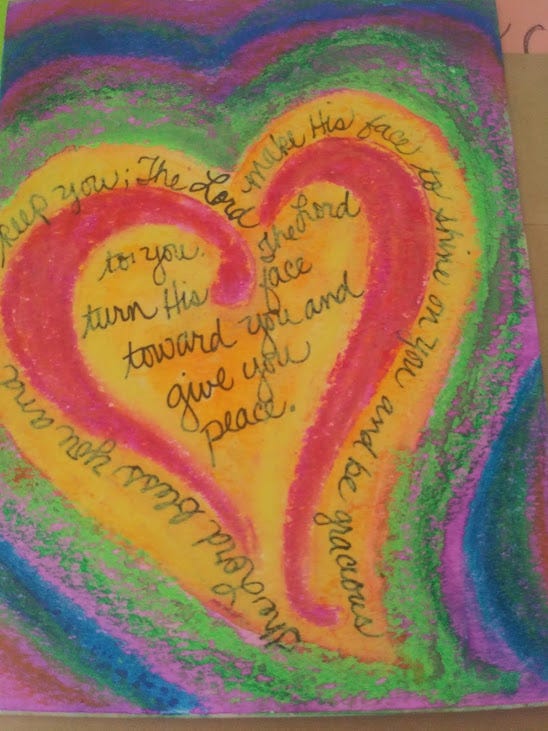 The Lord bless you and
keep you; The Lord
make His face to shine on you and be gracious
to you. The Lord
turn His face
toward you and
give you
peace.